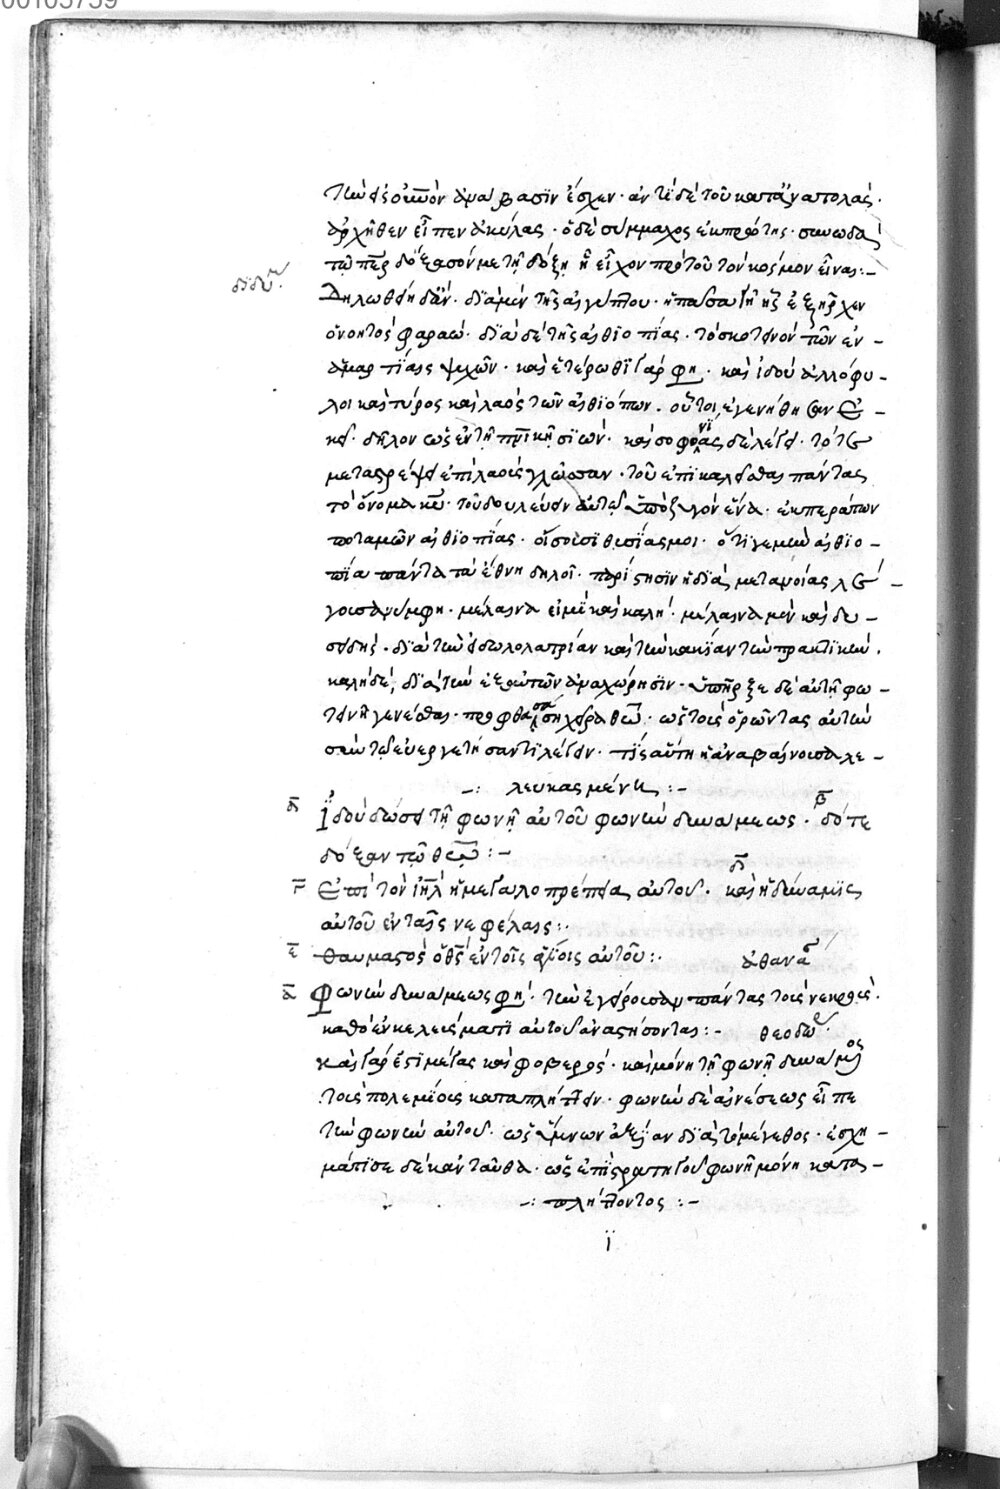 00105759
τὴν εἰς οὐρανὸν ἀνάβασϊν ἔσχεν· ἀντὶ δὲ τοῦ κατὰ ἀνατολὰς·
ἀρχῆθεν εἶπεν ἀκύλας· ὁ δὲ σύμμαχος ἐκ πρώτης· συνωδὰ
τῶ περ δόξασόν με τῇ δόξῃ ἧ εἶχον πρὸ τοῦ τὸν κόσμον εἶναι:–
διδύ
Δηλωθείη δ' ἂν· δϊὰ μὲν τῆς αἰγύπτου· ἡ πᾶσα γῆ ἧς ἐξῆρχεν
ὁ νοητὸς φαραώ· δϊὰ δὲ τῆς αἰθϊοπίας· τὸ σκοτεινὸν τῶν ἐν
ἁμαρτΐαις ψυχῶν· καὶ ἑτέρωθϊ γάρ φη· καὶ ἰδοὺ ἀλλόφυ–
λοι καὶ τύρος καὶ λαὸς τῶν αἰθϊόπων· οὗτοι ἐγενήθησαν ἐ–
κεῖ· δῆλον ὡς ἐν τῇ πνικῇ σϊών· καὶ σοφονίας δὲ λέγει· τότε
μεταστρέψει ἐπὶ λαοὺς γλῶσσαν· τοῦ ἐπϊκαλεῖσθαι πάντας
τὸ ὄνομα κυ· τοῦ δουλεύειν αὐτῶ ὑπὸ ζυγὸν ἕνα· ἐκ περάτων
ποταμῶν αἰθϊοπΐας· οἴσουσϊ θυσΐας μοι· ὅτι γε μὴν αἰθϊο–
πΐα πάντα τὰ ἔθνη δηλοῖ· παρίστησϊν ἡ δϊὰ μετανοίας λέ–
γουσα νύμφη· μέλαινα εἰμὶ καὶ καλή· μέλαινα μὲν καὶ δυ–
σειδής· δϊὰ τὴν εἰδωλολατρίαν καὶ τὴν κακΐαν τὴν πρακτϊκήν·
καλὴ δὲ, δϊὰ τὴν ἐξ αὐτῶν ἀναχώρησϊν· ὑπῆρξε δὲ αὐτῇ φω–
τεινῇ γενέσθαι· προφθασάσῃ χεῖρα θῶ· ὡς τοὺς ὁρῶντας αὐτὴν
σὺν τῶ εὐεργέτῃ σαντϊ λέγειν· τΐς αὕτη ἡ ἀναβαίνουσα λε–
–: λευκασμένη :–
δ Ἰδοὺ δώσει τῇ φωνῇ αὐτοῦ φωνὴν δυνάμεως· β δότε
δόξαν τῶ θεῶ :–
γ Ἐπὶ τὸν ιηλ ἡ μεγαλοπρέπεια αὐτοῦ· δ καὶ ἡ δύναμϊς
αὐτοῦ ἐν ταῖς νεφέλαις :·
ε θαυμαστὸς ὁ θς ἐν τοῖς ἁγίοις αὐτοῦ :· ἀθανα
α Φωνὴν δυνάμεως φη· τὴν ἐγείρουσαν πάντας τοὺς νεκρούς·
καθὸ ἐν κελεύσματϊ αὐτοῦ ἀναστήσονται :– θεοδω
Καὶ γάρ ἐστι μέγας καὶ φοβερός· καὶ μόνῃ τῇ φωνῇ δυνάμενος
τοὺς πολεμΐους καταπλήττειν· φωνὴν δὲ αἰνέσεως εἶπε
τὴν φωνὴν αὐτοῦ· ὡς ὕμνων ἀξίαν δϊὰ τὸ μέγεθος· ἐσχη–
μάτϊσε δὲ κἀνταῦθα· ὡς ἐπϊ στρατηγοῦ φωνῇ μόνῃ κατα–
–: πλήττοντος :–
ϊ